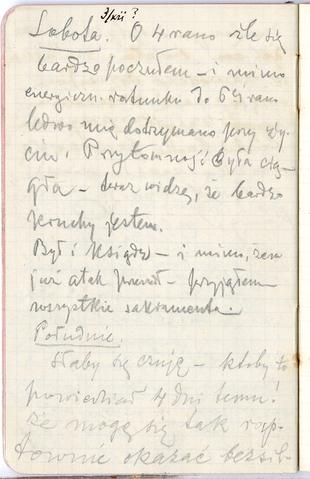 3/XII ?
Sobota. O 4 rano źle się
bardzo poczułem – i mimo
energiczn. ratunku do 6 rano
ledwo mię dotrzymano przy ży-
ciu. Przytomność była cią-
gła – teraz widzę, że bardzo
kruchy jestem.
Był i Ksiądz – i mimo, żem
już atak przeszedł – przyjąłem
wszystkie sakramenta.
Południe.
Słaby się czuję – ktoby to
powiedział 4 dni temu!
że mogę się tak rap-
townie okazać bezsil-